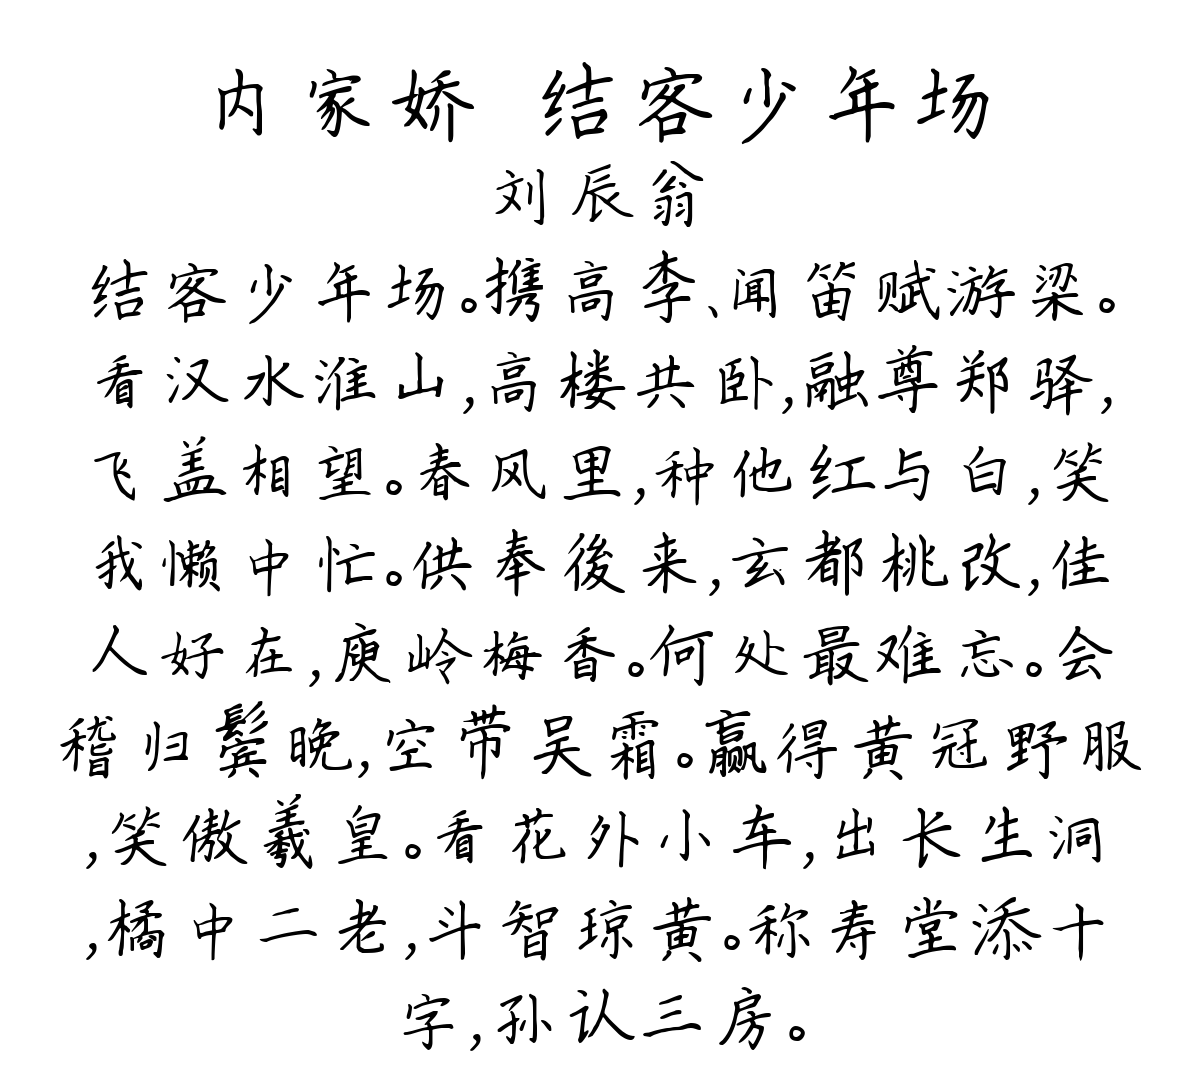 内家娇 结客少年场
刘辰翁
结客少年场。携高李、闻笛赋游梁。
看汉水淮山,高楼共卧,融尊郑驿,
飞盖相望。春风里,种他红与白,笑
我懒中忙。供奉後来,玄都桃改,佳
人好在,庾岭梅香。何处最难忘。会
稽归鬓晚,空带吴霜。赢得黄冠野服
,笑傲羲皇。看花外小车,出长生洞
,橘中二老,斗智琼黄。称寿堂添十
字,孙认三房。